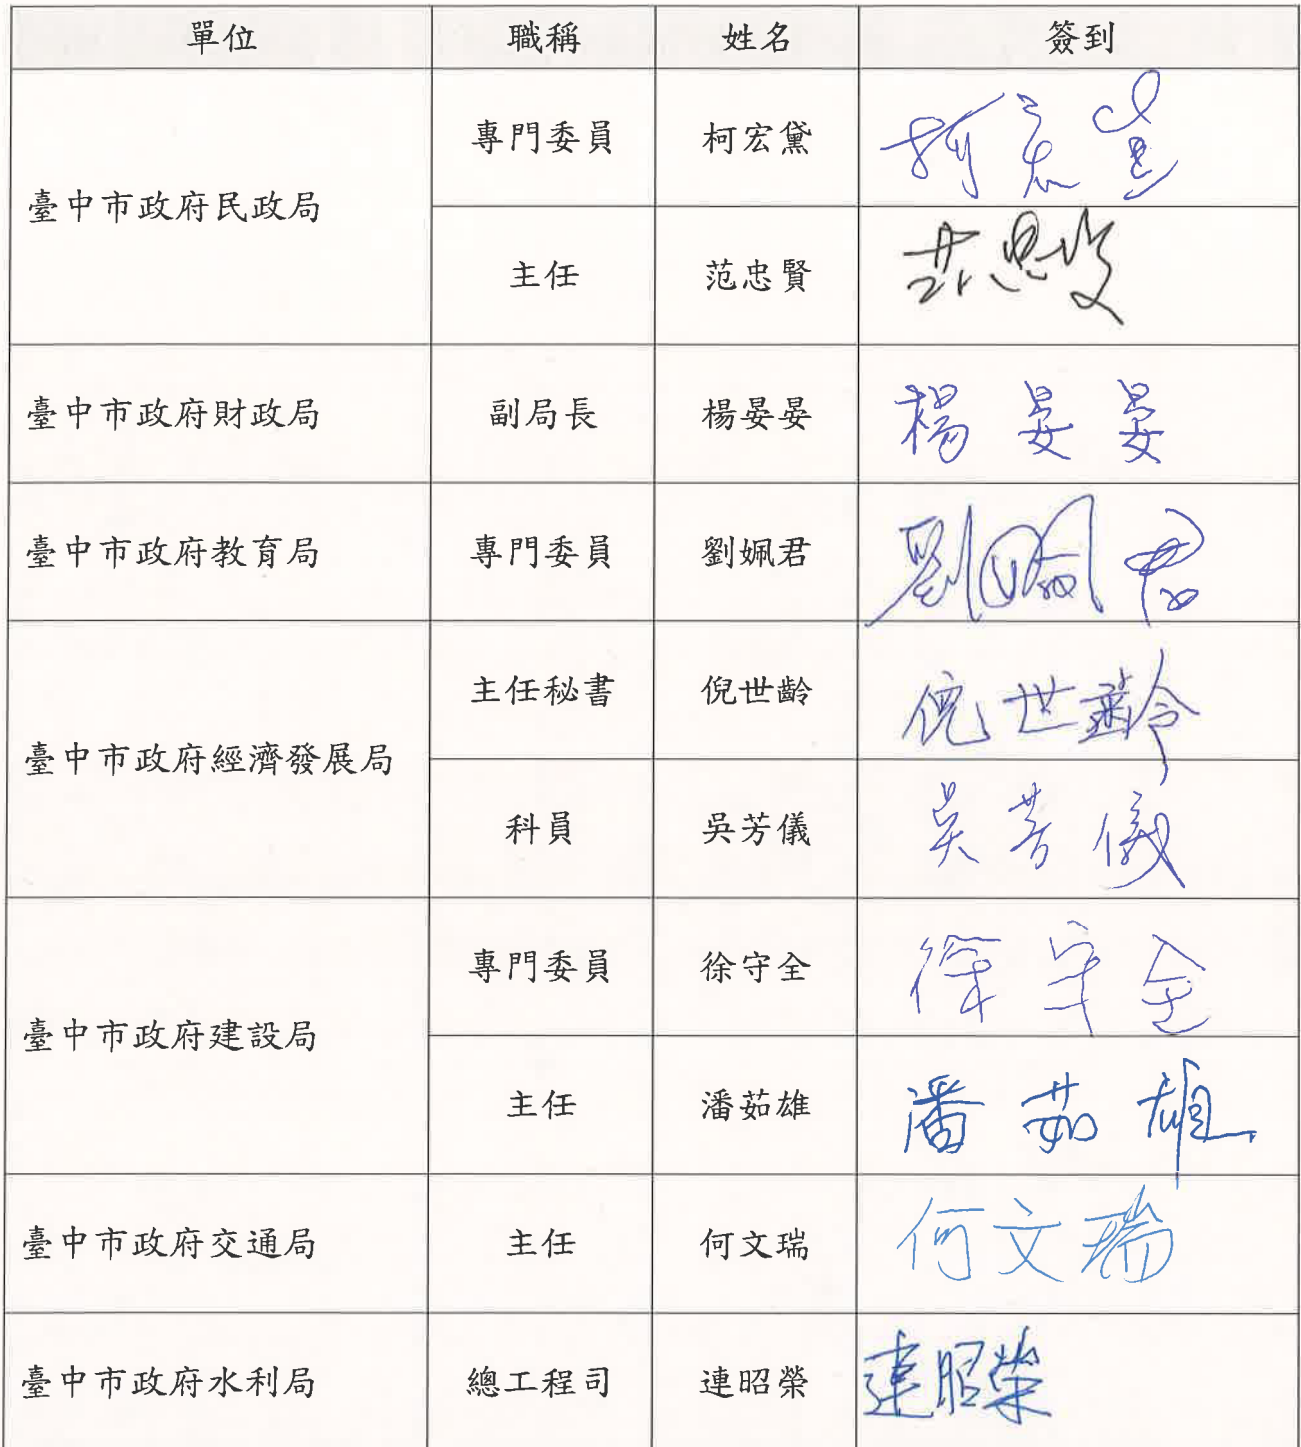 單位 職稱 姓名 簽到
臺中市政府民政局 專門委員 柯宏黛 柯宏黛
主任 范忠賢 范忠賢
臺中市政府財政局 副局長 楊晏晏 楊晏晏
臺中市政府教育局 專門委員 劉姵君 劉姵君
臺中市政府經濟發展局 主任秘書 倪世齡 倪世齡
科員 吳芳儀 吳芳儀
臺中市政府建設局 專門委員 徐守全 徐守全
主任 潘茹雄 潘茹雄
臺中市政府交通局 主任 何文瑞 何文瑞
臺中市政府水利局 總工程司 連昭榮 連昭榮